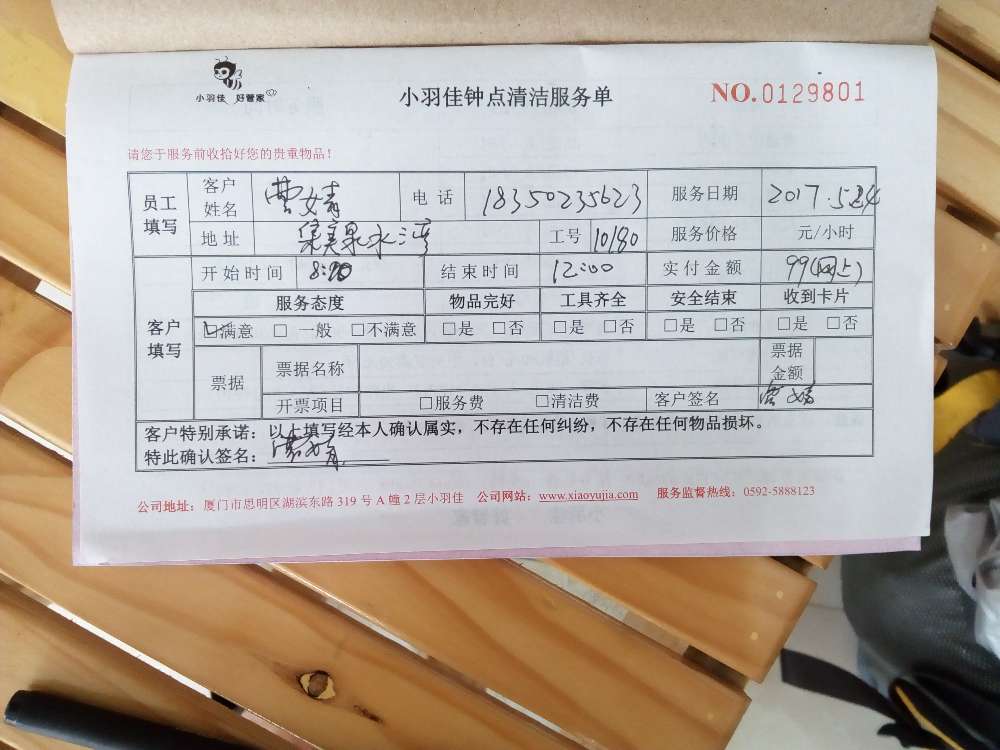 小羽佳 好管家
小羽佳钟点清洁服务单
NO.0129801
请您于服务前收拾好您的贵重物品！
员工填写 客户姓名 曹婧 电话 18350235623 服务日期 2017.5.24
地址 泉水湾 工号 10180 服务价格 元/小时
客户填写 开始时间 8:20 结束时间 12:00 实付金额 99(网上)
服务态度 物品完好 工具齐全 安全结束 收到卡片
满意 □ 一般 □不满意 □是 □否 □是 □否 □是 □否 □是 □否
票据 票据名称 票据金额
开票项目 □服务费 □清洁费 客户签名 曹婧
客户特别承诺：以上填写经本人确认属实，不存在任何纠纷，不存在任何物品损坏。
特此确认签名：曹婧
公司地址：厦门市思明区湖滨东路 319 号 A 幢 2 层小羽佳 公司网站：www.xiaoyujia.com 服务监督热线：0592-5888123